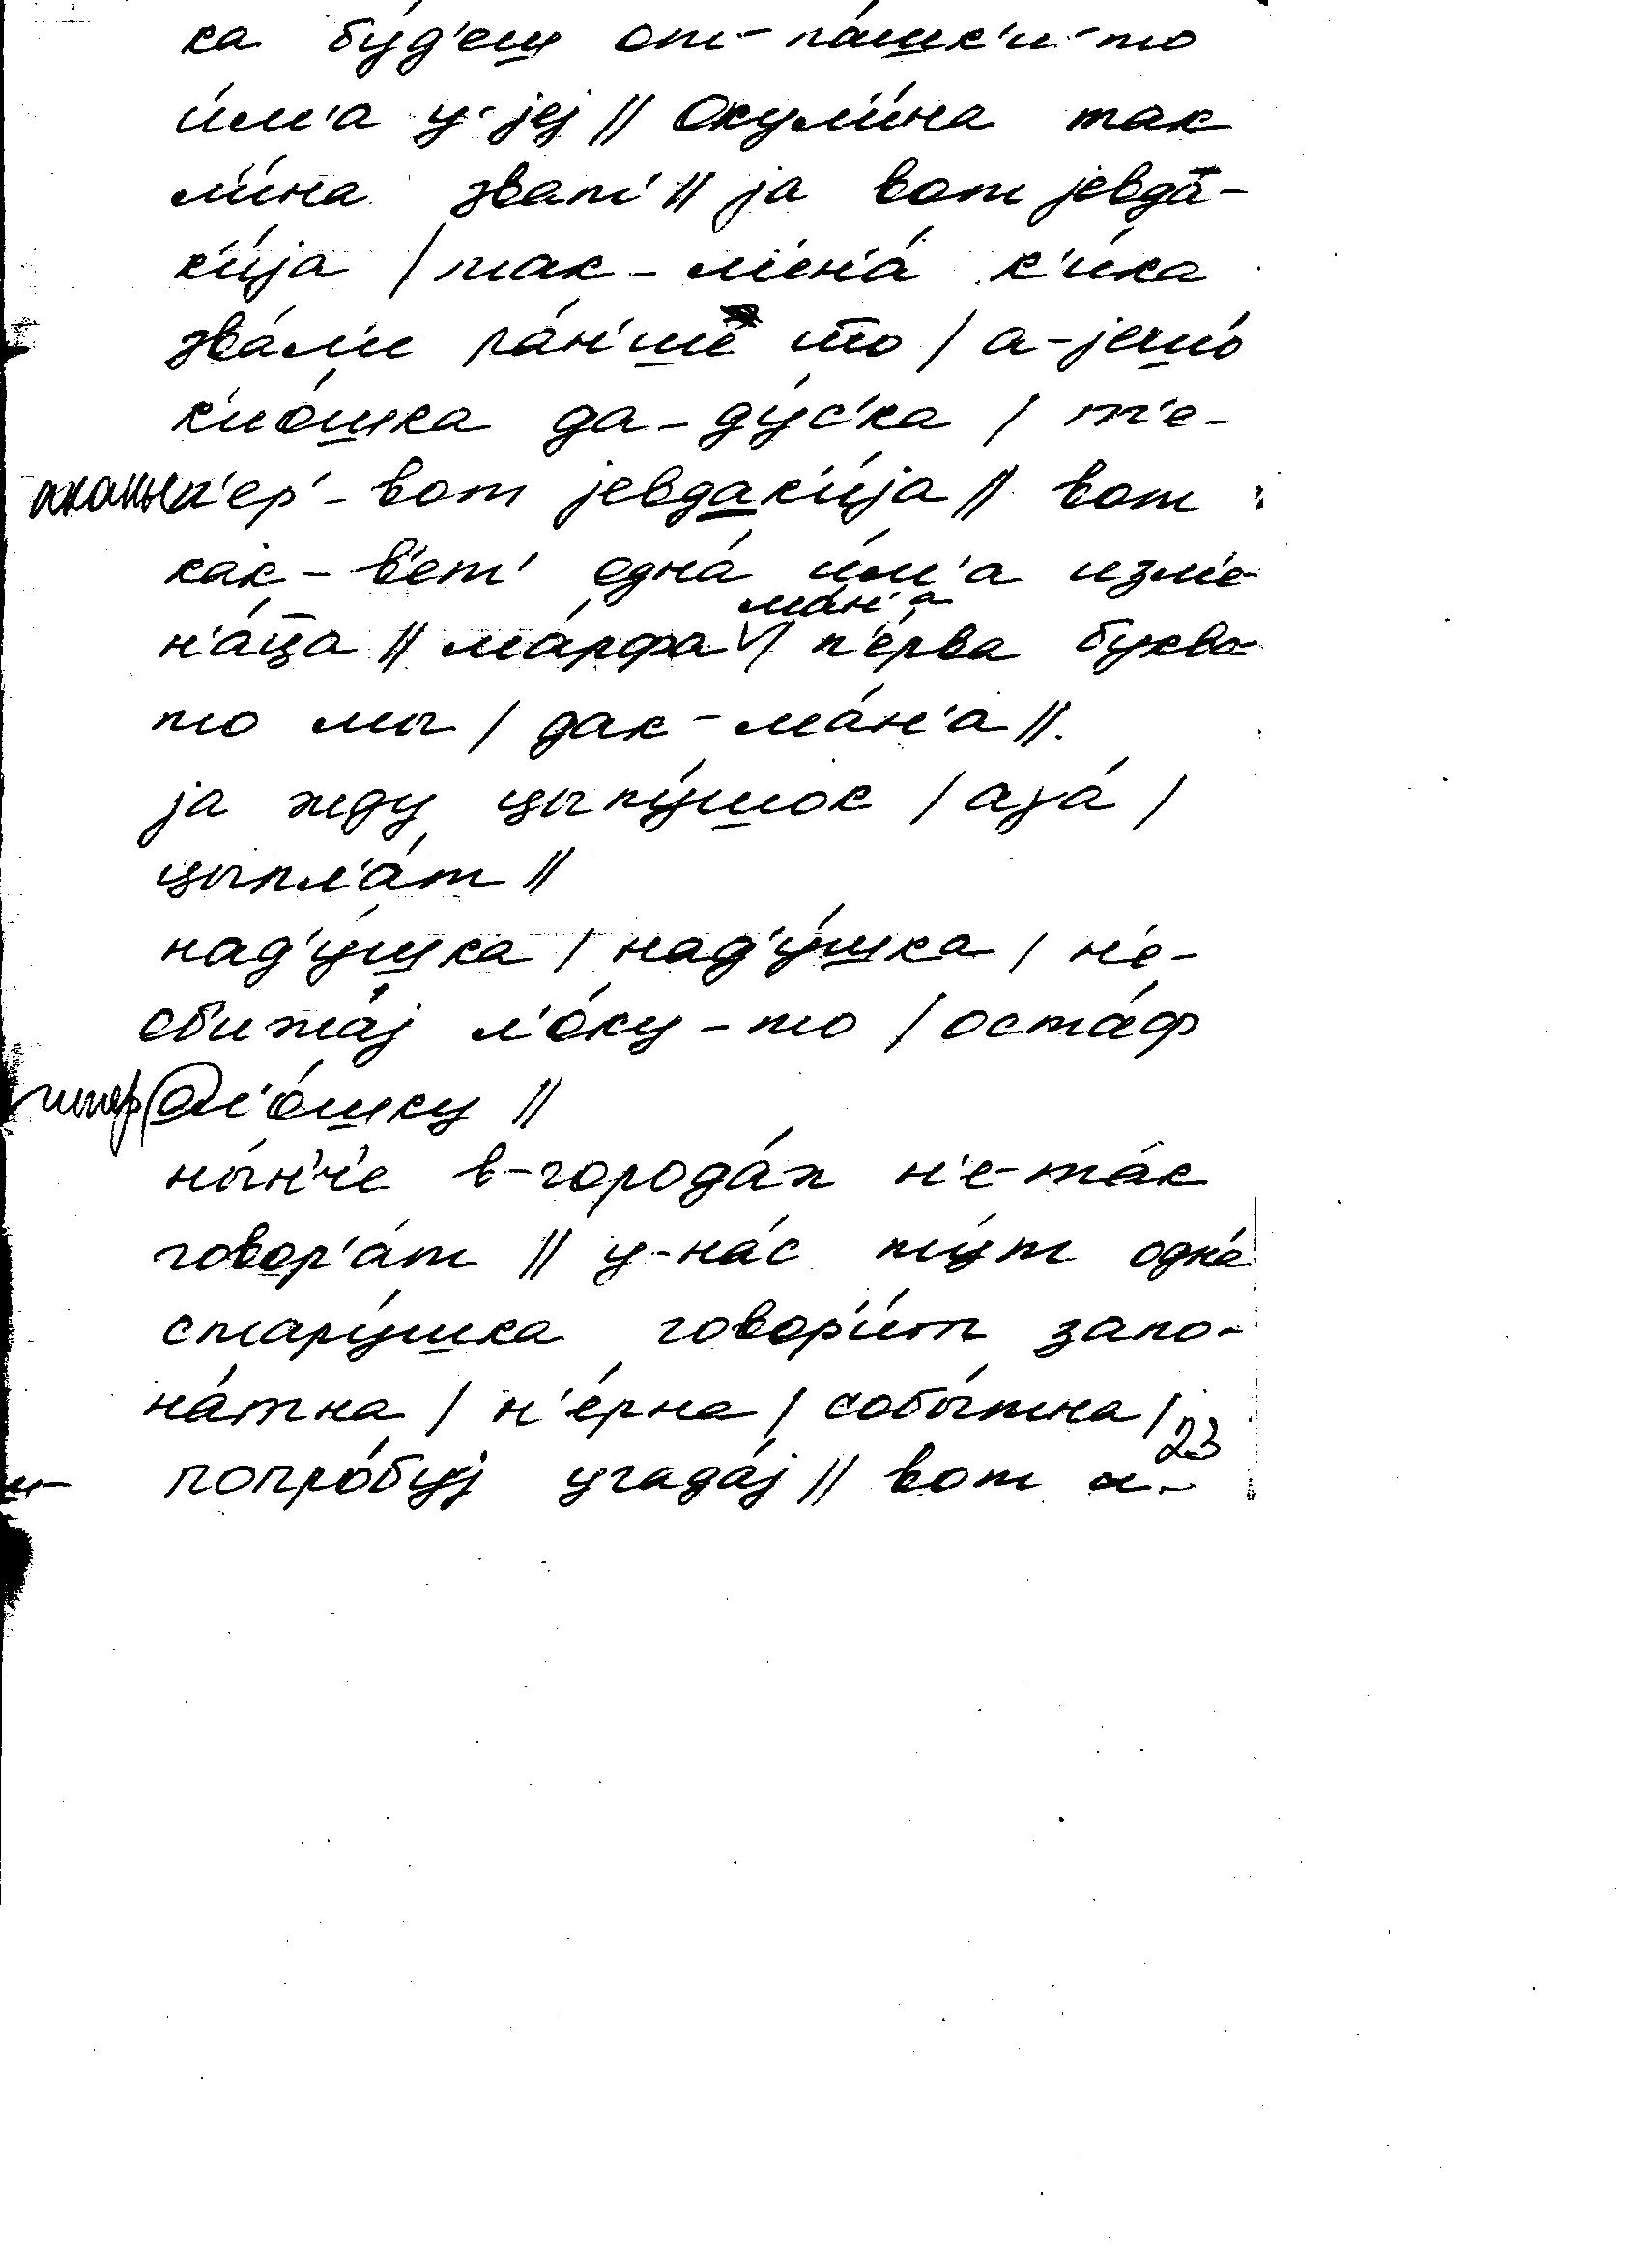 ка бу́д'еш от-па́шк'и-то
и́м'а у-jеj // Окул'и́на так
л'и́на зват' // jа вот jевда̄-
к'и́jа / так-м'ен'а́ к'и́ка
зва́л'и ра́н'ше то / а-jешо́
к'ио́шка да-ду́с'ка / т'е-
п'ер'-вот jевдак'и́jа // вот
как-в'ет' одна́ и́м'а изм'е-
н'а́ц̄а // ма́рфа ма́н'а / п'е́рва буква-
то мы / дак-ма́н'а //
jа жду цыпу́шок / аγа́ /
цыпл'а́т //
над'у́шка / над'у́шка / н'е-
обижа́j л'о́ку-то / оста́ф
ол'о́шку //
ны́н'ч'е в-города́х н'е-та́к
говор'а́т // у-на́с ту́т одна́
стару́шка говор'и́т запо-
на́тна / н'е́рна / собы́тна /
попро́буj угада́j // вот и-
23